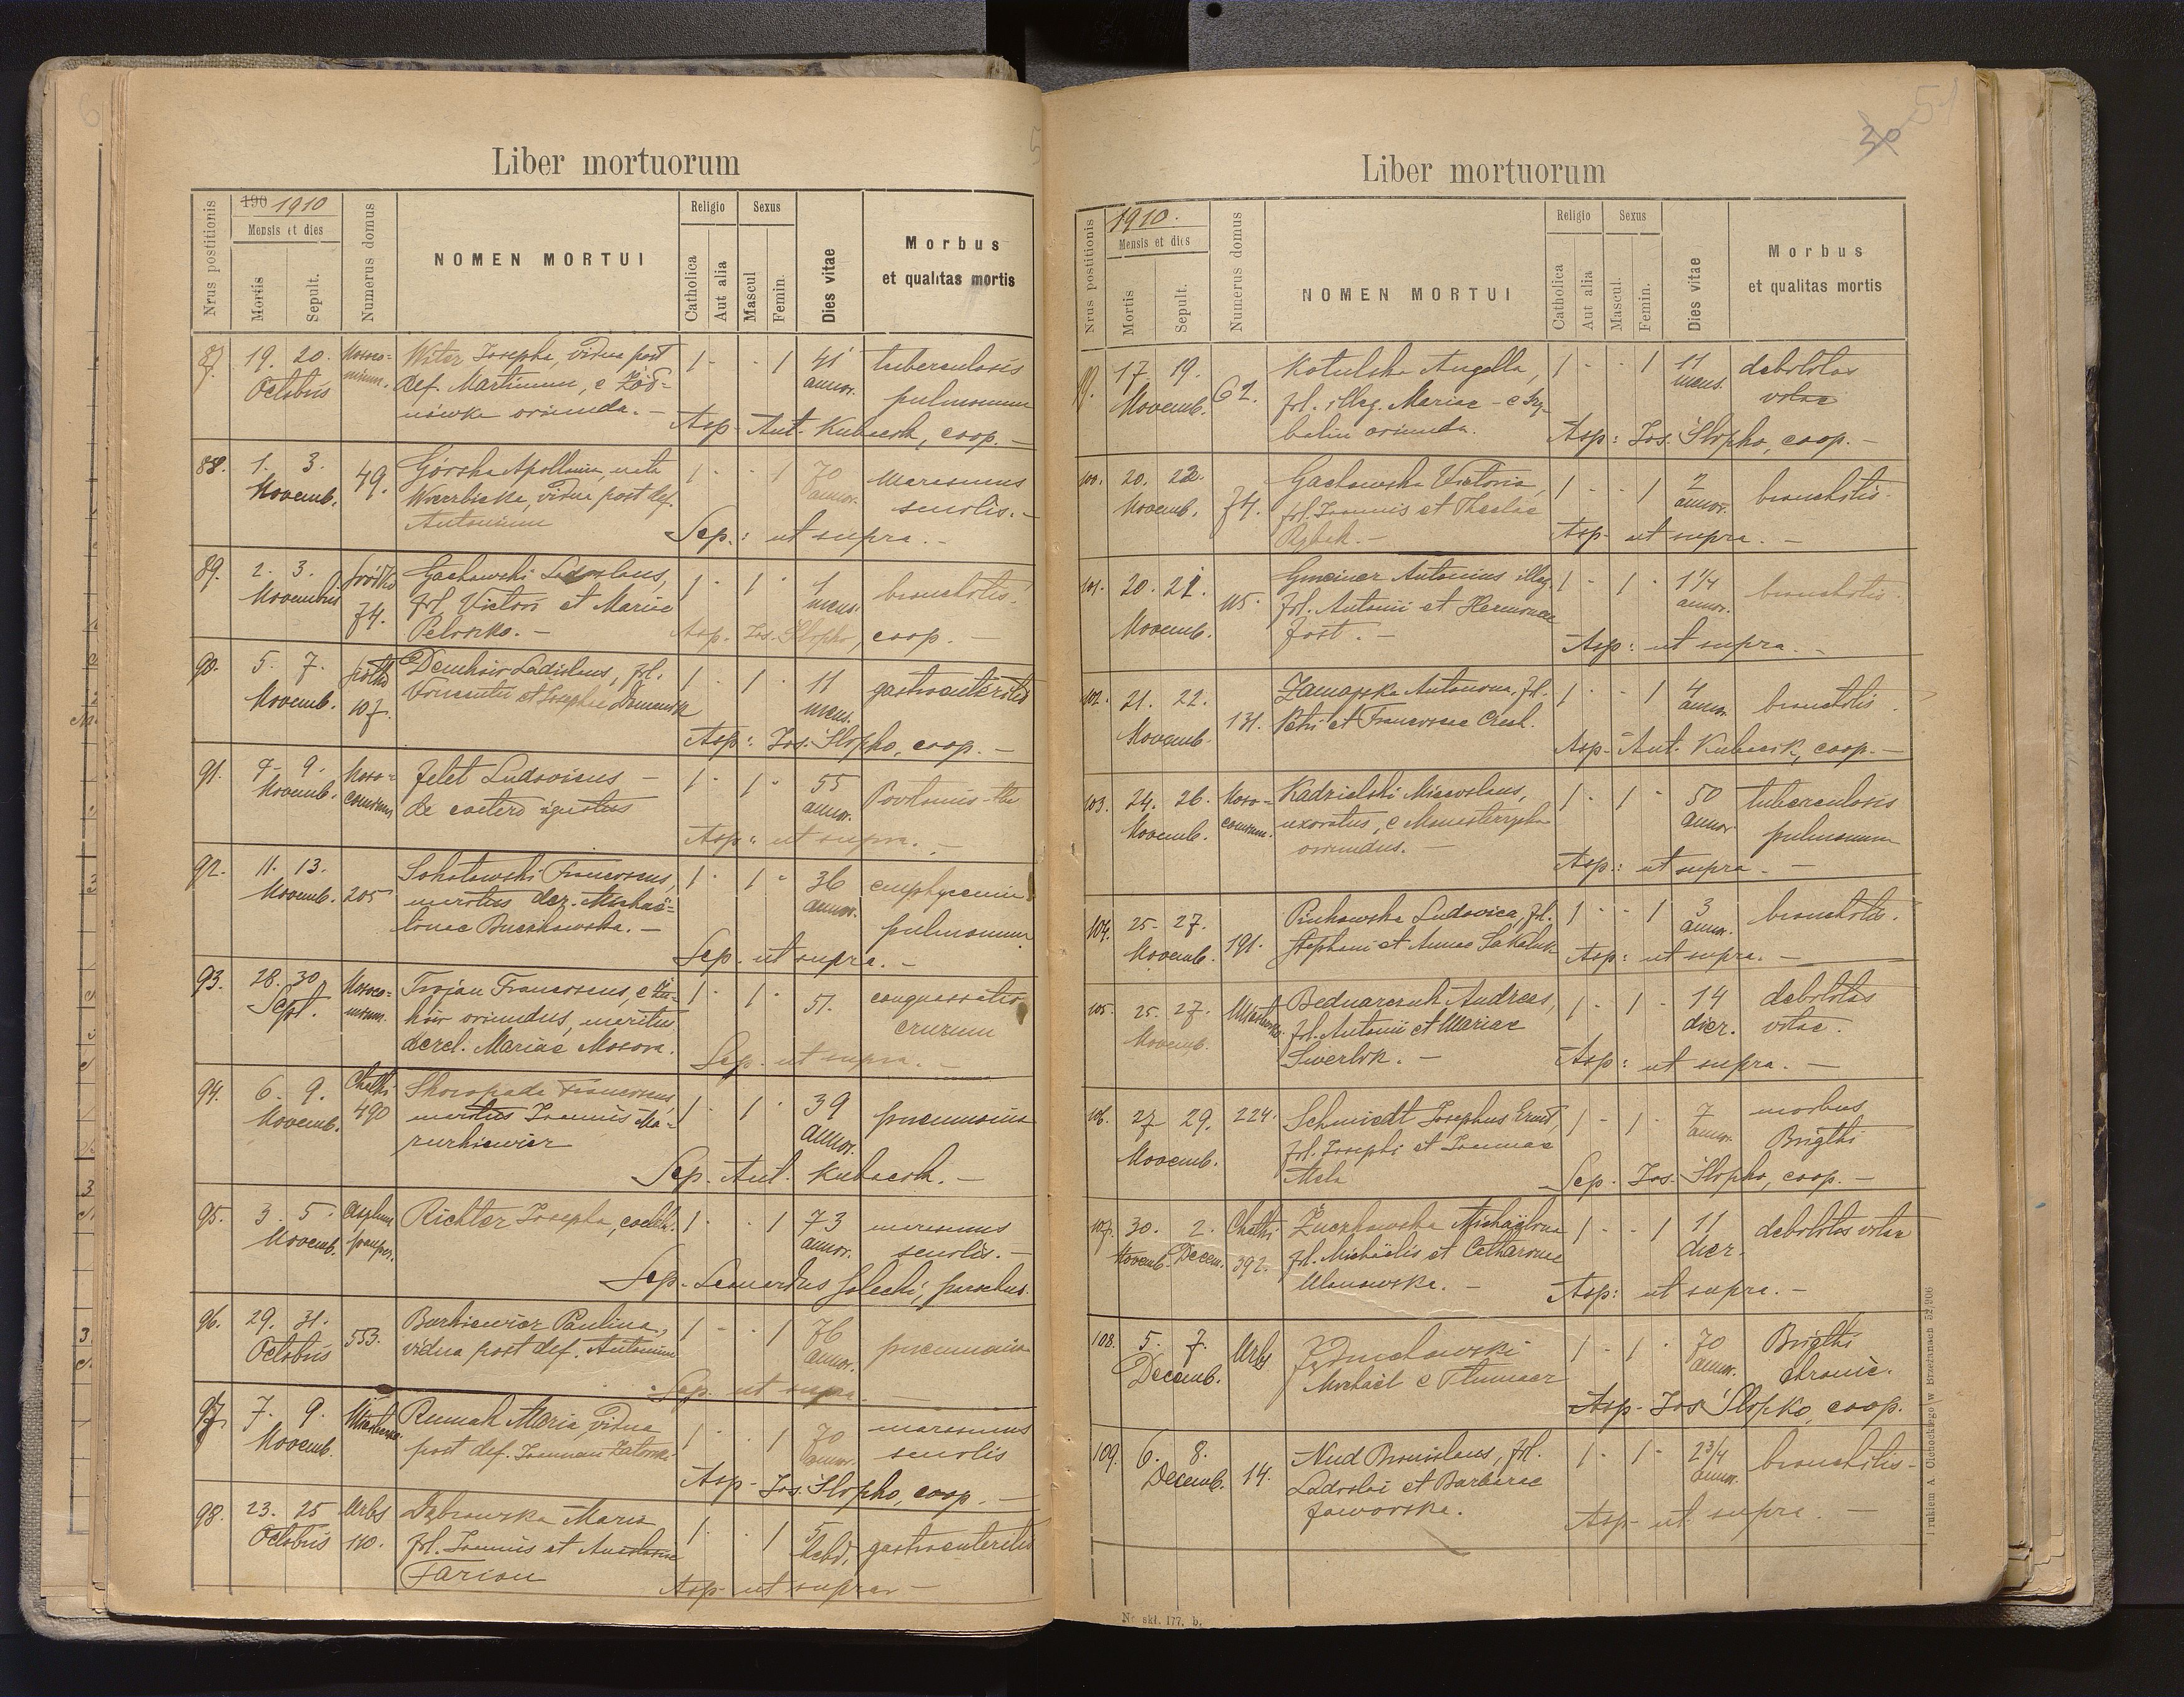 Liber mortuorum
Nrus postitionis
190 1910
Mensis et dies
Mortis
Sepult.
Numerus domus
NOMEN MORTUI
Religio
Catholica
Aut alia
Sexus
Mascul
Femin.
Dies vitae
Morbus
et qualitas mortis
87. 19. 20. Octobris
Witer Josepha, vidua post
def. Martinum, e
oriunda. –
1 - - 1 41 annor.
tuberculosis
pulmonum
Asp. Ant. Kubacsk, coop. –
88. 1. 3. Novemb. 49.
Górska Apollonia, nata
Wierzbicka, vidua post def.
Antonium
1 - - 1 70 annor.
marasmus
senilis. –
Sep.: ut supra. –
89. 2. 3. Novembris 74.
Gachowski Ladislaus,
fil. Victori et Mariae
1 - 1 - 1 mens.
bronchitis.
Asp. Jos. Slopko, coop. –
90. 5. 7. Novemb. 107.
Ladislaus, fil.
Vincentii et Josephae
1 - 1 - 11 mens.
gastroenteritis
Asp: Jos. Slopko, coop. –
91. 7. 9. Novemb. Noso-
comium
Ludovicus –
de caetero ignotus
1 - 1 - 55 annor.
Asp: ut supra. –
92. 11. 13. Novemb. 205
Sokolowski Franciscus,
maritus der. Michaë-
linae Buczkowska. –
1 - 1 - 36 annor.
emphysemia
pulmonum
Sep. ut supra. –
93. 28. 30. Sept.
Trojan Franciscus, e
oriundus, maritus
derel. Mariae Mosora.
1 - 1 - 51.
conquassatio
crurum
Sep. ut supra. –
94. 6. 9. Novemb. Chatki 490
Skoropada Franciscus,
maritus Joannis Ma-
zurkiewicz
1 - 1 - 39 annor.
pneumonia
Sep. Ant. Kubacsk. –
95. 3. 5. Novemb. Asylum pauper.
Richter Josepha, coelib.
1 - - 1 73 annor.
marasmus
senilis. –
Sep. Leonardus Solecki, parochus.
96. 29. 31. Octobris 553.
Burkiewicz Paulina,
vidua post def. Antonium
1 - - 1 76 annor.
pneumonia
Sep. ut supra. –
97. 7. 9. Novemb.
Rumak Maria, vidua
post def. Joannem
1 - - 1 70 annor.
marasmus
senilis
Asp. Jos. Slopko, coop. –
98. 23. 25 Octobris Urbs 110.
Dąbrowska Maria
fil. Joannis et
Farion
1 - - 1 5 hebd.
gastroenteritis
Asp. ut supra –
51
30
Liber mortuorum
Nrus postitionis
1910.
Mensis et dies
Mortis
Sepult.
Numerus domus
NOMEN MORTUI
Religio
Catholica
Aut alia
Sexus
Mascul.
Femin.
Dies vitae
Morbus
et qualitas mortis
99. 17 19. Novemb. 62.
Kotulska Angella,
fil. illeg. Mariae – e
oriunda.
1 - - 1 11 mens.
debilitas
vitae
Asp: Jos. Slopko, coop. –
100. 20. 22. Novemb. 74.
Gachowska Victoria,
fil. Joannis et Theclae
Rybak. –
1 - - 1 2 annor.
bronchitis.
Asp. ut supra. –
101. 20. 21. Novemb. 115.
Gmeiner Antonius illeg.
fil. Antonii et
Jost. –
1 - 1 - 1 1/4 annor.
bronchitis.
Asp: ut supra. –
102. 21. 22. Novemb. 131.
Antonina, fil.
Petri et Franciscae
1 - - 1 4 annor.
bronchitis.
Asp. Ant. Kubacsk, coop. –
103. 24. 26. Novemb. Noso-
comium.
Kadzielski Miecislaus,
uxoratus, e
oriundus. –
1 - 1 - 50 annor
tuberculosis
pulmonum
Asp: ut supra –
104. 25. 27. Novemb. 191.
Ludovica, fil.
Stephani et Annae
1 - - 1 3 annor.
bronchitis.
Asp: ut supra. –
105. 25. 27. Novemb.
Bednarczuk Andreas,
fil. Antonii et Mariae
1 - 1 - 14 dier.
debilitas
vitae.
Asp: ut supra. –
106. 27 29. Novemb. 224.
Schmiedt Josephus Ernest,
fil. Josephi et Joannae
1 - 1 - 7 annor.
morbus
Brigthi
Sep. Jos. Slopko, coop. –
107. 30. Novemb. 2. Decem. Chatki 392.
Żuczkowska Michaëlina
fil. Michaëlis et Catharinae
Ulanowska. –
1 - - 1 11 dier.
debilitas vitae
Asp: ut supra. –
108. 5. 7. Decemb. Urbs
Michaël e Tłumacz
1 - 1 - 70 annor.
Brigthi
chronic.
Asp. Jos Slopko, coop.
109. 6. 8. Decemb. 14.
Nud Bronislaus, fil.
Ladislai et Barbarae
Jaworska.
1 - 1 - 2 3/4 annor.
bronchitis –
Asp. ut supra. –
Nr. skł. 177. b.
Drukiem A Cichockiego W Brzeżanach 52,906